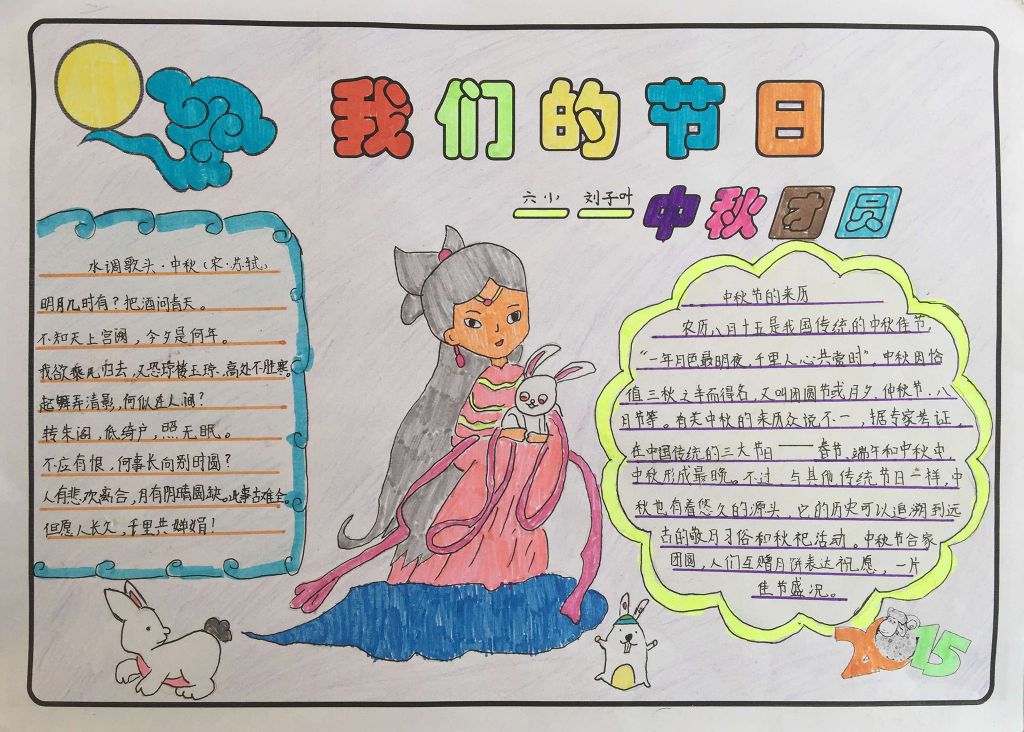 我们的节日
六小 刘子叶
中秋团圆
水调歌头·中秋(宋·苏轼)
明月几时有?把酒问青天。
不知天上宫阙,今夕是何年。
我欲乘风归去,又恐琼楼玉宇,高处不胜寒。
起舞弄清影,何似在人间?
转朱阁,低绮户,照无眠。
不应有恨,何事长向别时圆?
人有悲欢离合,月有阴晴圆缺。此事古难全。
但愿人长久,千里共婵娟!
中秋节的来历
农历八月十五是我国传统的中秋佳节,
“一年月色最明夜,千里人心共赏时”,中秋因恰
值三秋之半而得名,又叫团圆节或月夕,仲秋节,八
月节等。有关中秋的来历众说不一,据专家考证,
在中国传统的三大节日——春节、端午和中秋中,
中秋形成最晚。不过,与其他传统节日一样,中
秋也有着悠久的源头,它的历史可以追溯到远
古的敬月习俗和秋祀活动。中秋节合家
团圆,人们互赠月饼表达祝愿,一片
佳节盛况。
2015